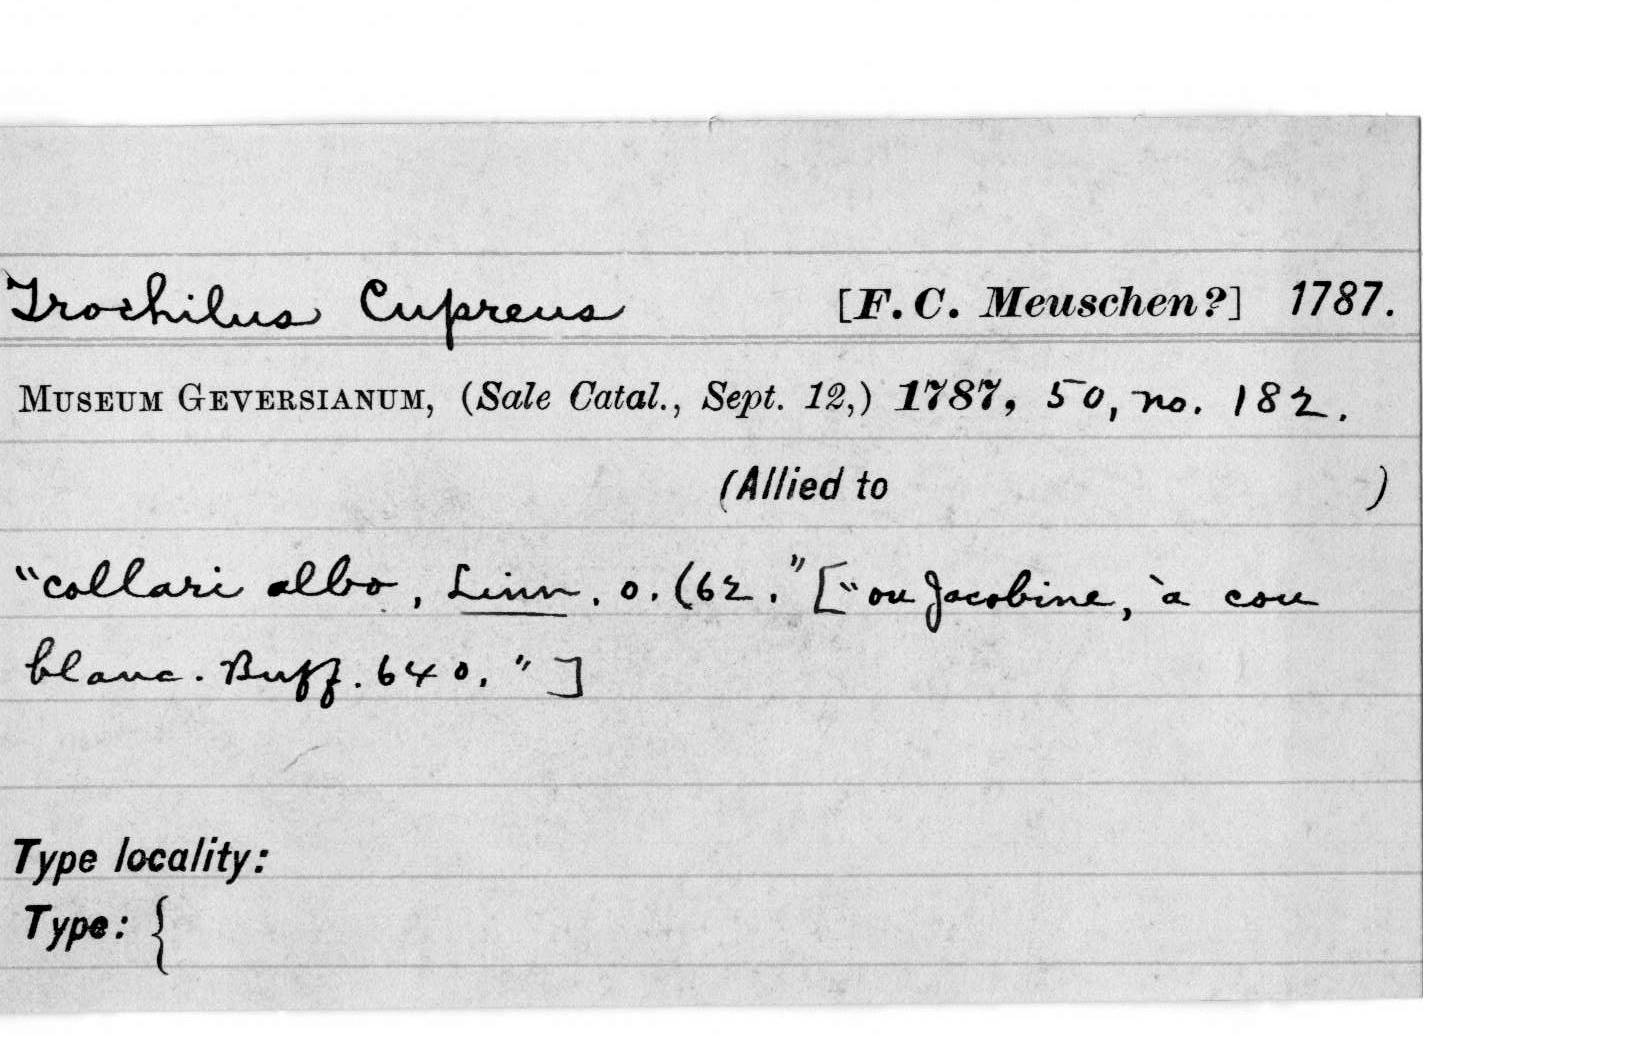 Trochilus Cupreus [F. C. Meuschen?] 1787.
Museum Geversianum, (Sale Catal., Sept. 12,) 1787, 50, no. 182.
(Allied to )
"collari albo, Linn. o. (62." ["ou Jacobine, à cou
blanc. Buff. 640."]
Type locality:
Type: {